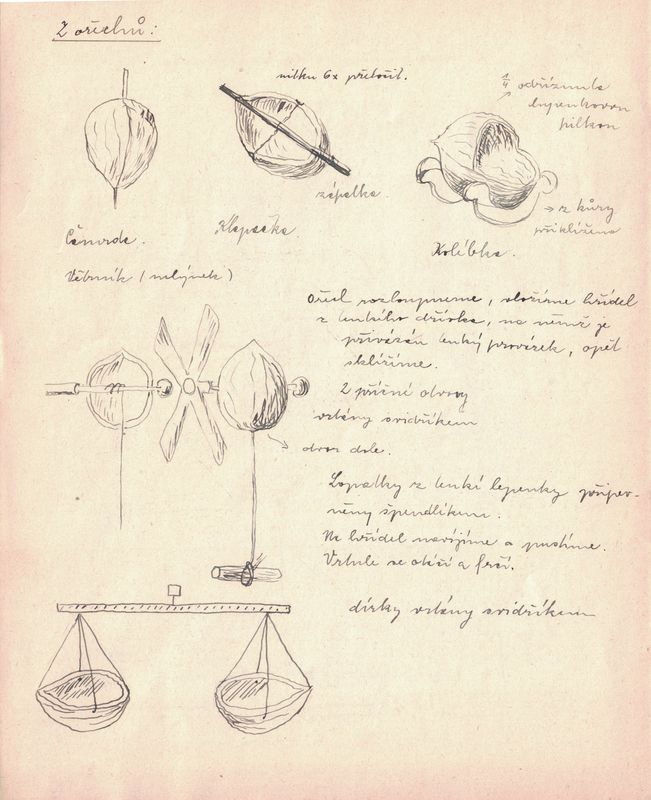 Z ořechů:
nitku 6x přeložit.
1/4 odříznuta
lupenkovou
pilkou
zápalka.
→ z kůry
přiklíženo
Čamrda.
Klapačka.
Kolébka.
Větrník (mlýnek)
Ořech rozloupneme, vložíme hřídel
z tenkého dřívka, na němž je
přivázán tenký provázek, opět
sklížíme.
2 příční otvory
vrtány svidříkem
otvor dole.
Lopatky z tenké lepenky připev-
něny špendlíkem.
Na hřídel navíjíme a pustíme.
Vrtule se otáčí a frčí.
dírky vrtány svidříkem